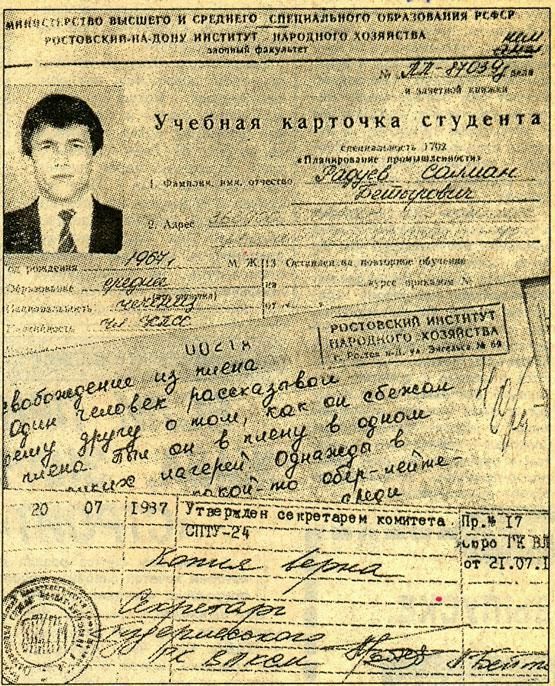 МИНИСТЕРСТВО ВЫСШЕГО И СРЕДНЕГО СПЕЦИАЛЬНОГО ОБРАЗОВАНИЯ РСФСР
РОСТОВСКИЙ-НА-ДОНУ ИНСТИТУТ НАРОДНОГО ХОЗЯЙСТВА
заочный факультет
№ ПП-87034 дела
и зачетной книжки
Учебная карточка студента
специальность 1702
«Планирование промышленности»
1. Фамилия, имя, отчество Радуев Салман
Бетырович
2. Адрес
од рождения 1967г М Ж 13 Оставлен на повторное обучение
Образование среднее на курсе приказом №
Национальность чеченец от
чл. ВЛКСМ
РОСТОВСКИЙ ИНСТИТУТ
НАРОДНОГО ХОЗЯЙСТВА
г. Ростов н-Д, ул. Энгельса № 69
свобождение из плена
Один человек рассказывал
ему другу о том, как он сбежал
плена. Был он в плену в одном
лагерей. Однажды в
какой то обер-лейте-
среди
20 07 1987 Утвержден секретарем комитета. Пр.№ 17
СПТУ-24 бюро ГК ВЛ
от 21.07.1
Копия верна
Секретарь
Гудермесского
ГК ВЛКСМ